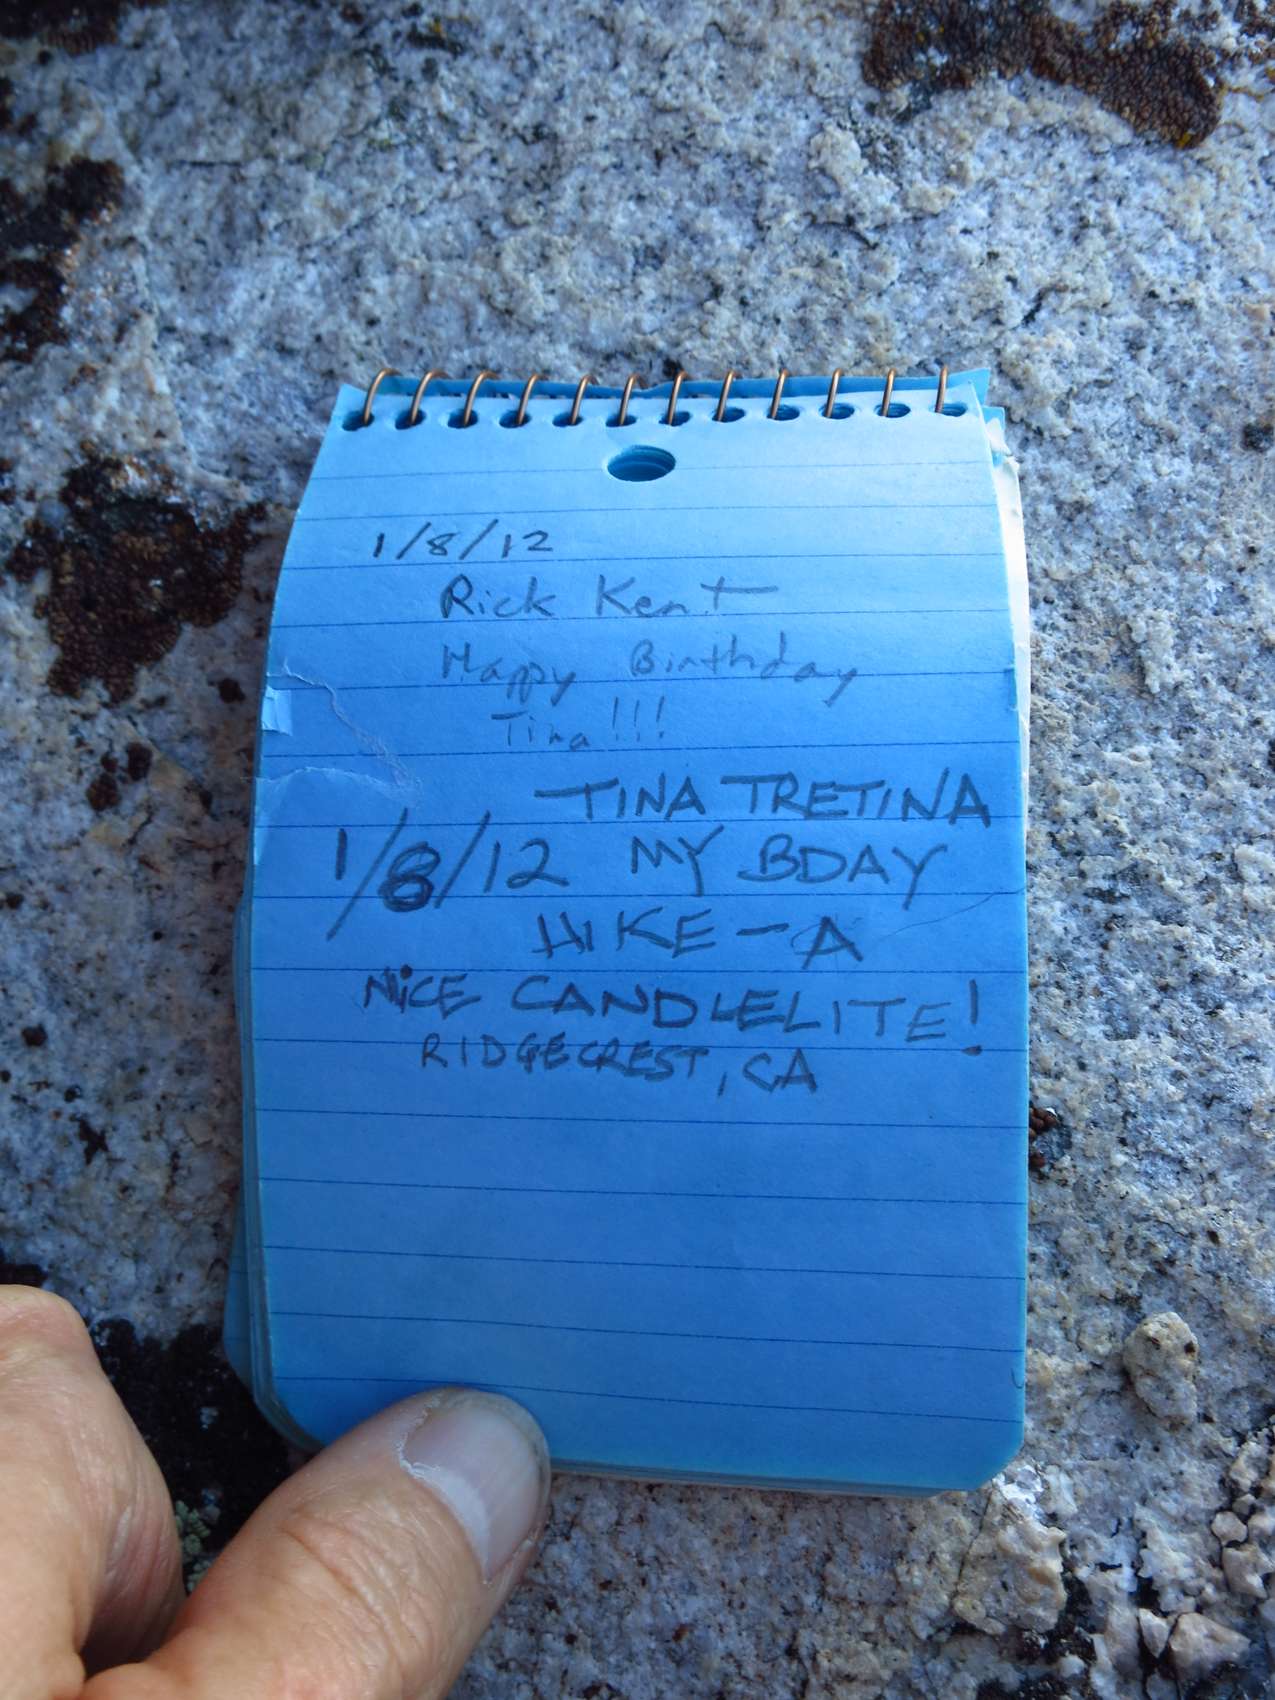 1/8/12
Rick Kent
Happy Birthday
Tina!!!
TINA TRETINA
1/8/12 MY BDAY
HIKE - A
NiCE CANDLELITE!
RIDGECREST, CA